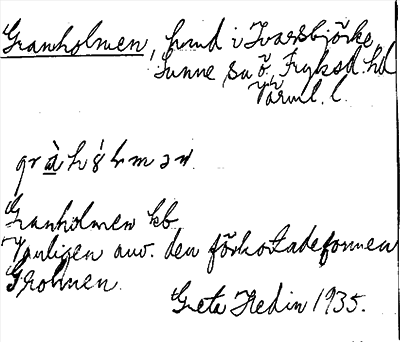 Granholmen, hmd i Ivarsbjörke,
Sunne sn ö., Fryksd. hd
Värml. l.
Granholmen kb.
Vanligen anv. den förkortade formen
Grolmen.
Greta Hedin 1935.